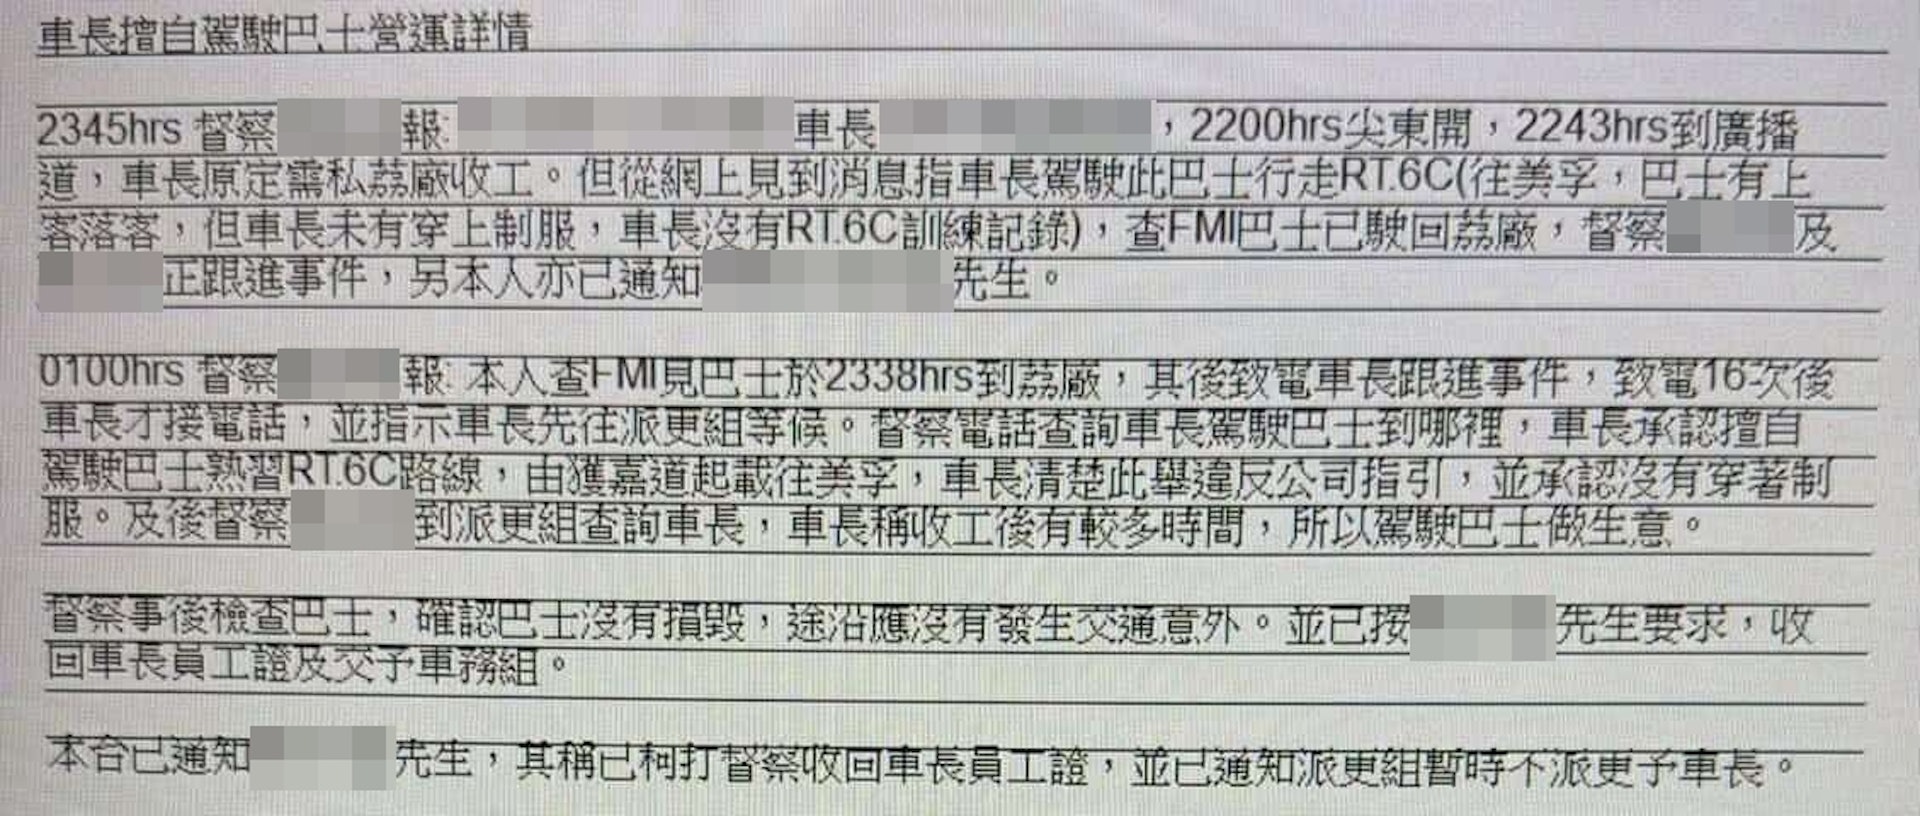 車長擅自駕駛巴士營運詳情
2345hrs 督察 報: 車長 ，2200hrs尖東開，2243hrs到廣播
道，車長原定需私荔廠收工。但從網上見到消息指車長駕駛此巴士行走RT.6C(往美孚，巴士有上
客落客，但車長未有穿上制服，車長沒有RT.6C訓練記錄)，查FMI巴士已駛回荔廠，督察 及
正跟進事件，另本人亦已通知 先生。
0100hrs 督察 報: 本人查FMI見巴士於2338hrs到荔廠，其後致電車長跟進事件，致電16次後
車長才接電話，並指示車長先往派更組等候。督察電話查詢車長駕駛巴士到哪裡，車長承認擅自
駕駛巴士熟習RT.6C路線，由獲嘉道起載往美孚，車長清楚此舉違反公司指引，並承認沒有穿著制
服。及後督察 到派更組查詢車長，車長稱收工後有較多時間，所以駕駛巴士做生意。
督察事後檢查巴士，確認巴士沒有損毀，途沿應沒有發生交通意外。並已按 先生要求，收
回車長員工證及交予車務組。
本台已通知 先生，其稱已柯打督察收回車長員工證，並已通知派更組暫時不派更予車長。